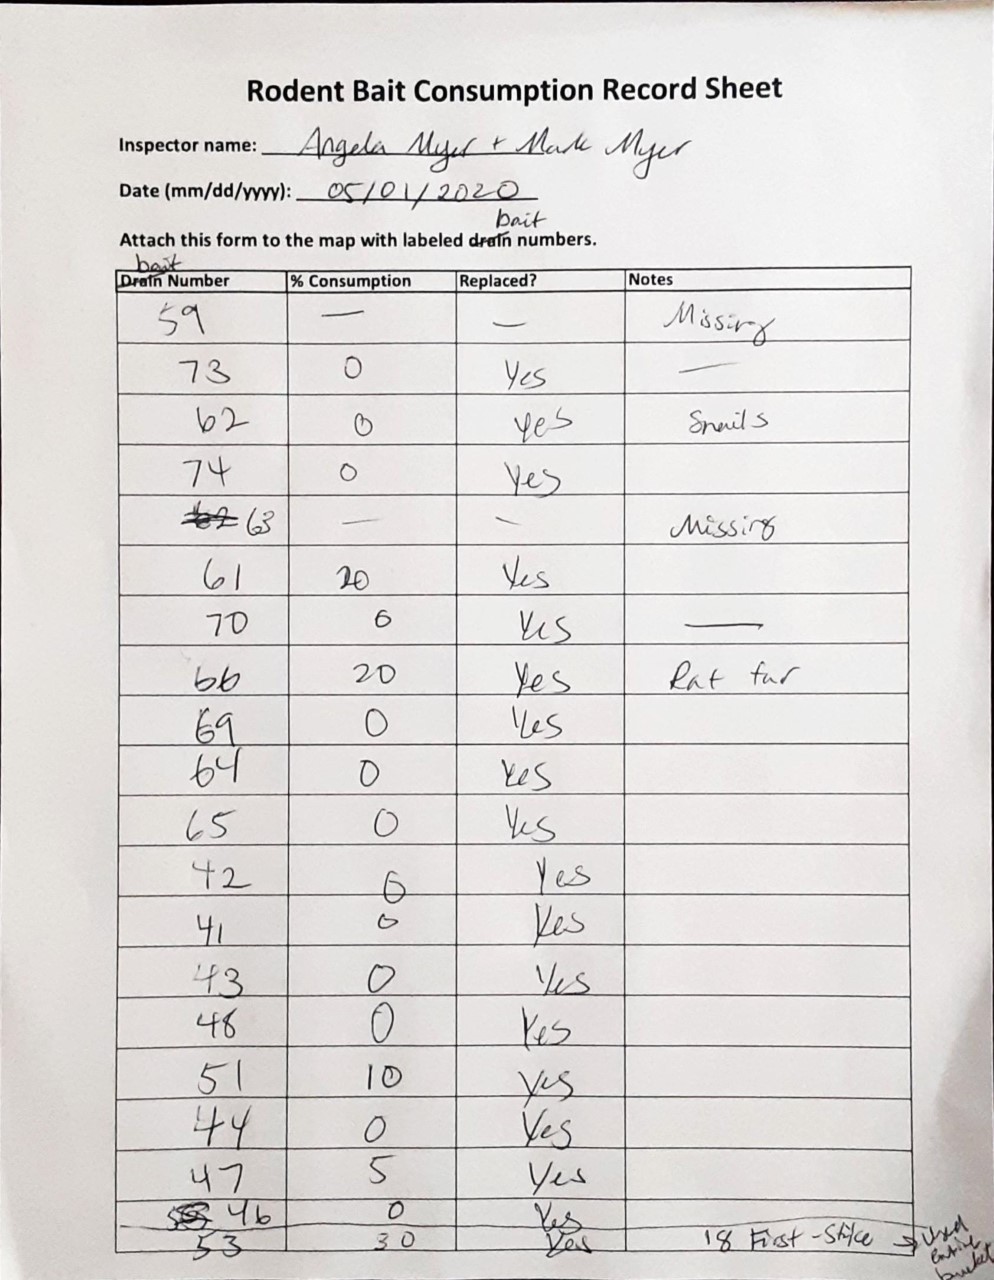 Rodent Bait Consumption Record Sheet
Inspector name: Angela Myer + Mark Myer
Date (mm/dd/yyyy): 05/01/2020
bait
Attach this form to the map with labeled drain numbers.
bait
Drain Number % Consumption Replaced? Notes
59 — — Missing
73 0 Yes —
62 0 yes Snails
74 0 Yes
62 63 — — Missing
61 20 Yes
70 0 Yes —
66 20 Yes Rat fur
69 0 Yes
64 0 Yes
65 0 Yes
42 0 Yes
41 0 Yes
43 0 Yes
48 0 Yes
51 10 Yes
44 0 Yes
47 5 Yes
46 0 Yes
53 30 Yes 18 First-Strike → Used
entire
bucket